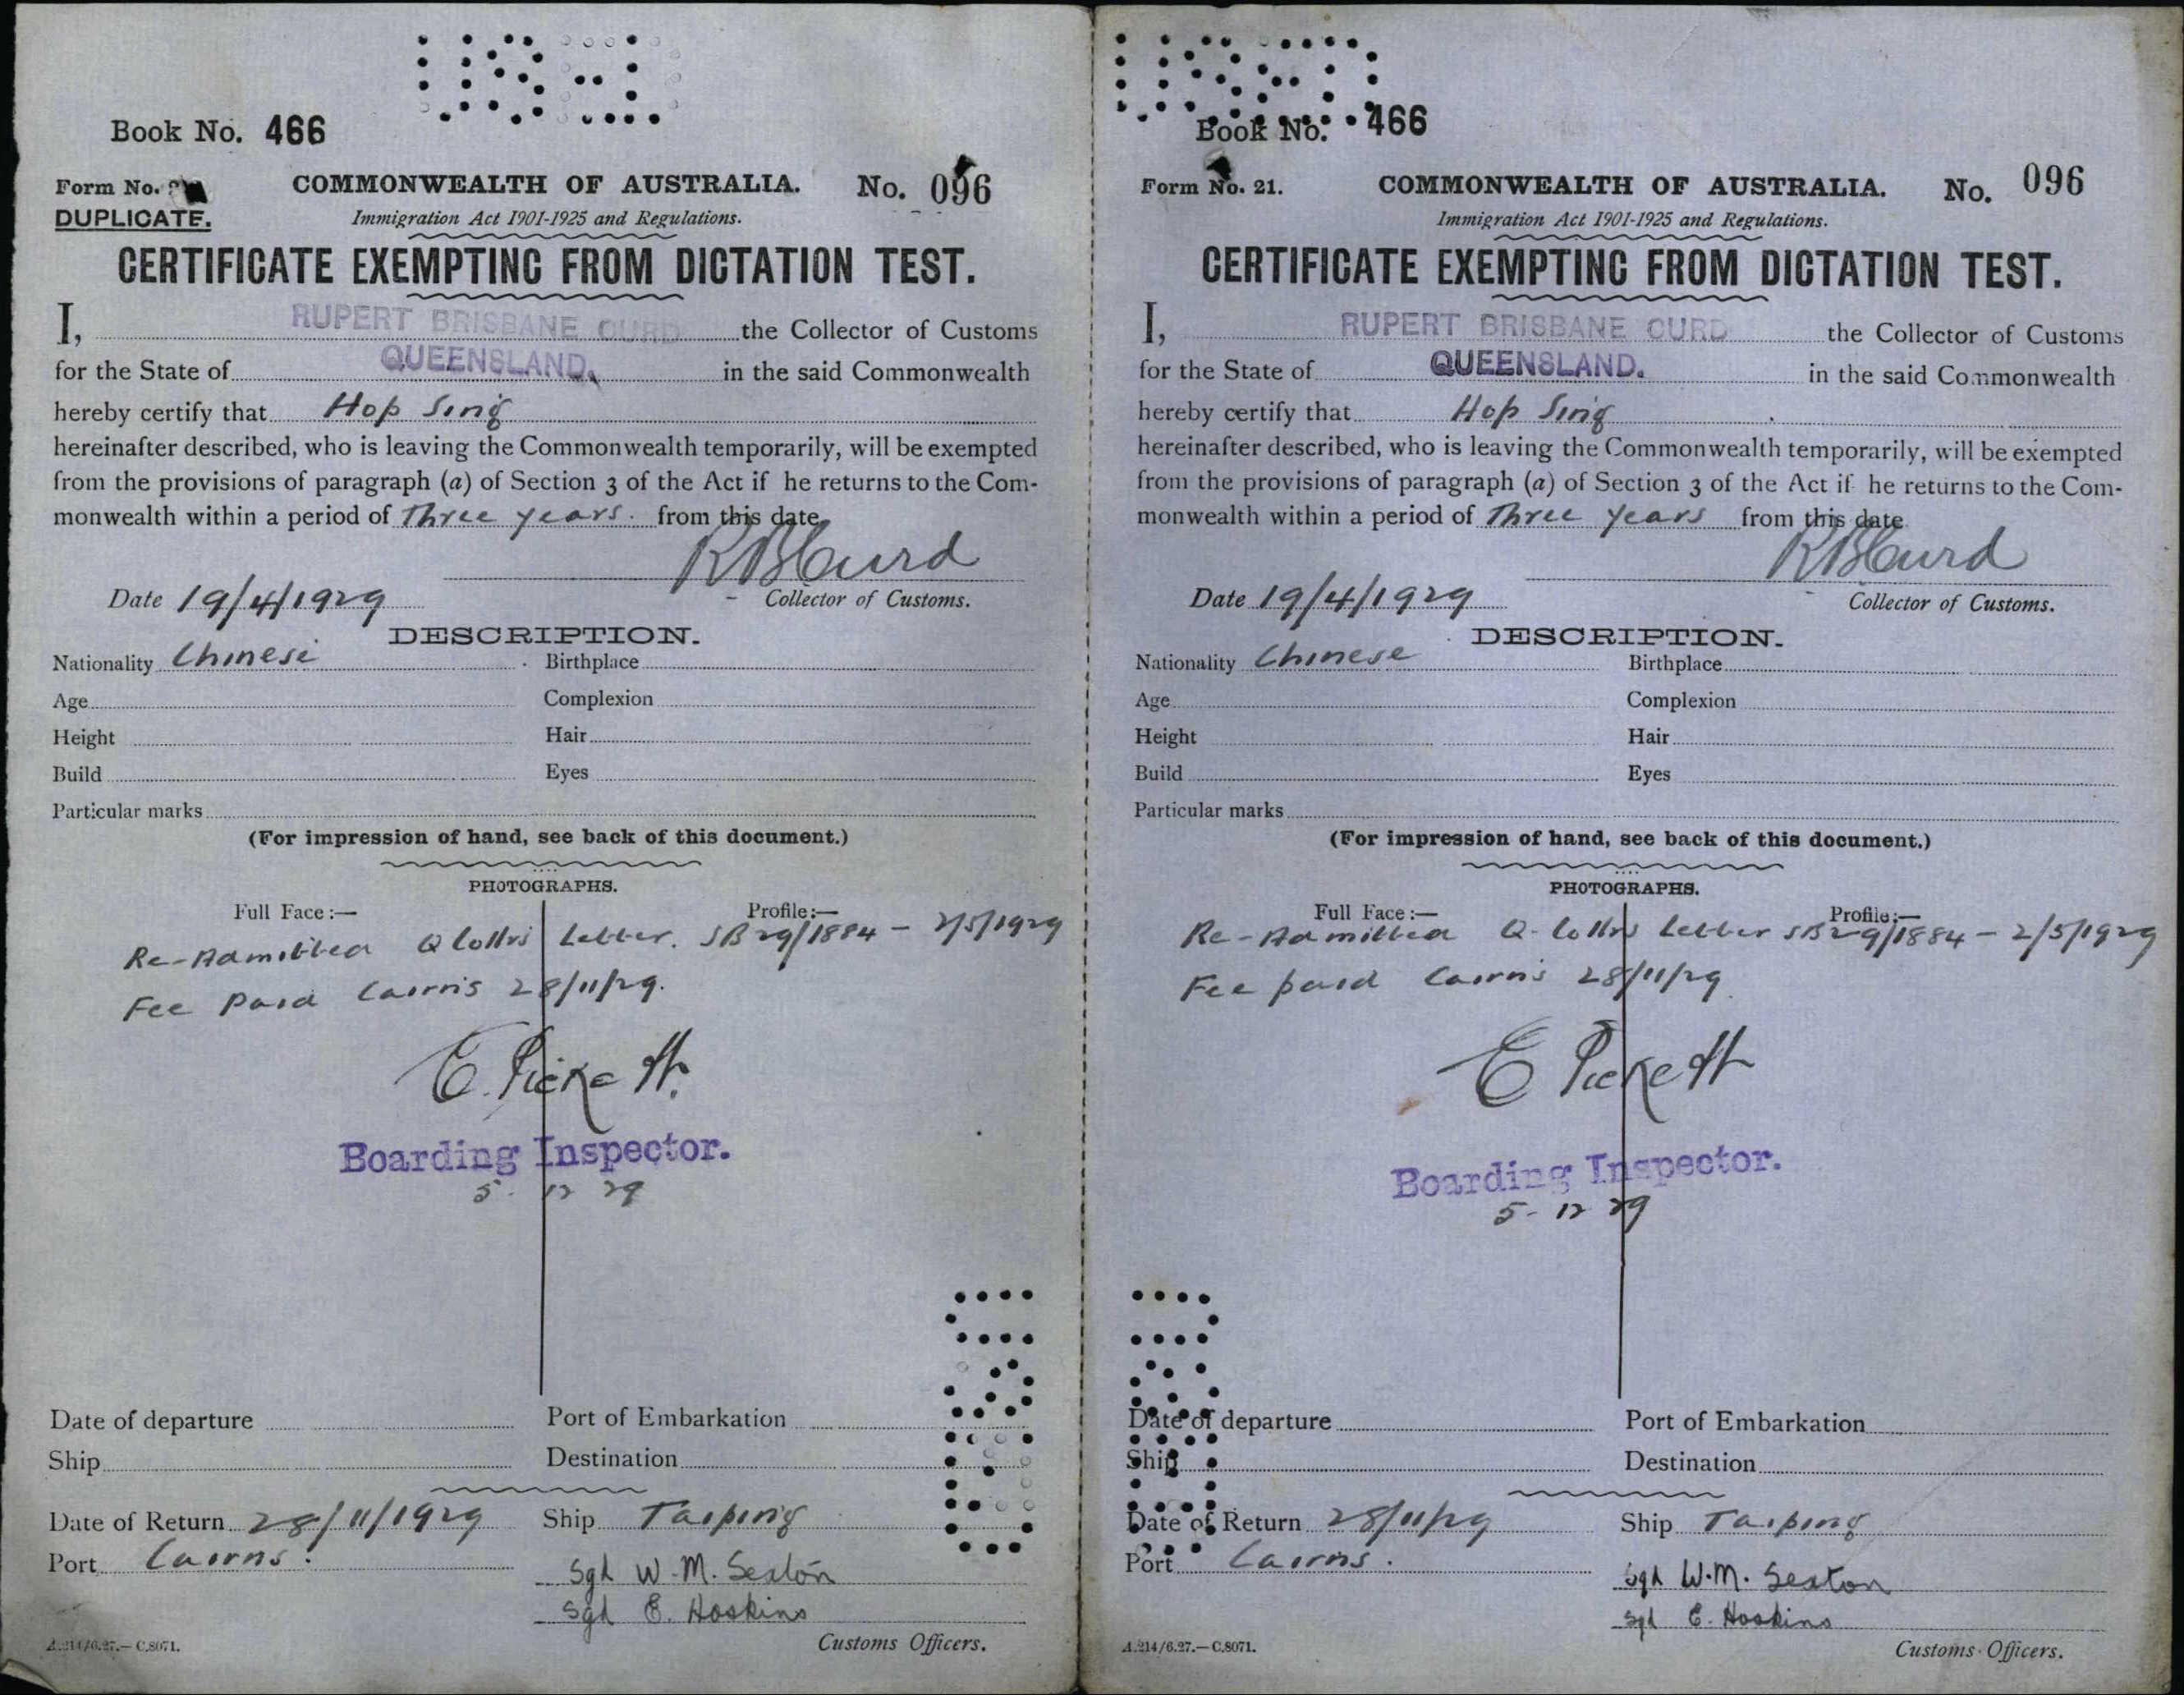 Book No. 466
Form No.
DUPLICATE.
COMMONWEALTH OF AUSTRALIA.
No. 096
Immigration Act 1901-1925 and Regulations.
CERTIFICATE EXEMPTING FROM DICTATION TEST.
I, RUPERT BRISBANE CURD the Collector of Customs
for the State of QUEENSLAND. in the said Commonwealth
hereby certify that Hop Sing
hereinafter described, who is leaving the Commonwealth temporarily, will be exempted
from the provisions of paragraph (a) of Section 3 of the Act if he returns to the Com-
monwealth within a period of Three years. from this date
R B Curd
Date 19/4/1929
Collector of Customs.
DESCRIPTION.
Nationality Chinese Birthplace
Age Complexion
Height Hair
Build Eyes
Particular marks
(For impression of hand, see back of this document.)
PHOTOGRAPHS.
Full Face:— Profile:—
Re-Admitted Q Collrs Letter. SB29/1884 - 2/5/1929
Fee Paid Cairns 28/11/29.
E. Pickett.
Boarding Inspector.
5. 12 29
Date of departure Port of Embarkation
Ship Destination
Date of Return 28/11/1929 Ship Taiping
Port Cairns.
Sgd W.M. Sexton
Sgd E. Hoskins
A.214/6.27.—C.8071.
Customs Officers.
Book No. 466
Form No. 21.
COMMONWEALTH OF AUSTRALIA.
No. 096
Immigration Act 1901-1925 and Regulations.
CERTIFICATE EXEMPTING FROM DICTATION TEST.
I, RUPERT BRISBANE CURD the Collector of Customs
for the State of QUEENSLAND. in the said Commonwealth
hereby certify that Hop Sing
hereinafter described, who is leaving the Commonwealth temporarily, will be exempted
from the provisions of paragraph (a) of Section 3 of the Act if he returns to the Com-
monwealth within a period of Three years from this date
R B Curd
Date 19/4/1929
Collector of Customs.
DESCRIPTION.
Nationality Chinese Birthplace
Age Complexion
Height Hair
Build Eyes
Particular marks
(For impression of hand, see back of this document.)
PHOTOGRAPHS.
Full Face:— Profile:—
Re-Admitted Q. Collrs Letter SB29/1884 - 2/5/1929
Fee paid Cairns 28/11/29
E Pickett
Boarding Inspector.
5- 12 29
Date of departure Port of Embarkation
Ship Destination
Date of Return 28/11/29 Ship Taiping
Port Cairns.
Sgd W.M. Sexton
Sgd E. Hoskins
A.214/6.27.—C.8071.
Customs Officers.